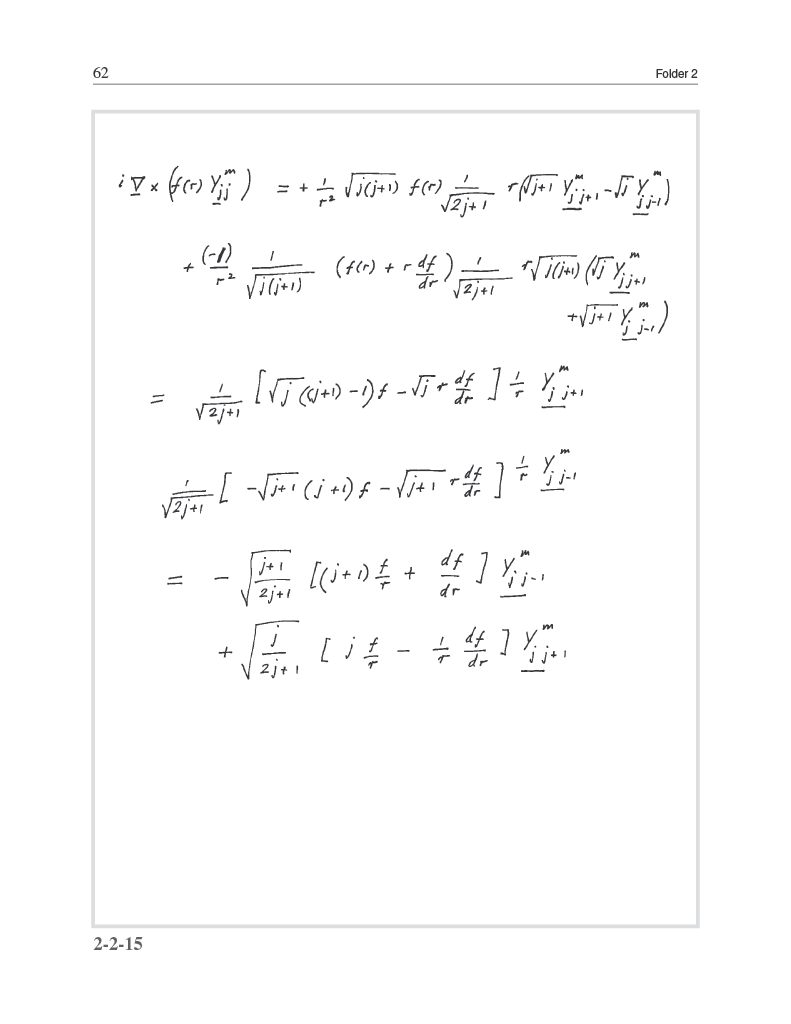 62 Folder 2
i ∇ × (f(r) Y_{jj}^m) = + 1/r² √(j(j+1)) f(r) 1/√(2j+1) r(√(j+1) Y_{j j+1}^m - √j Y_{j j-1}^m)
+ (-1)/r² 1/√(j(j+1)) (f(r) + r df/dr) 1/√(2j+1) r√(j(j+1)) (√j Y_{j j+1}^m
+ √(j+1) Y_{j j-1}^m)
= 1/√(2j+1) [√j ((j+1) - 1) f - √j r df/dr ] 1/r Y_{j j+1}^m
1/√(2j+1) [ -√(j+1) (j+1) f - √(j+1) r df/dr ] 1/r Y_{j j-1}^m
= - √((j+1)/(2j+1)) [(j+1) f/r + df/dr ] Y_{j j-1}^m
+ √(j/(2j+1)) [ j f/r - 1/r df/dr ] Y_{j j+1}^m
2-2-15